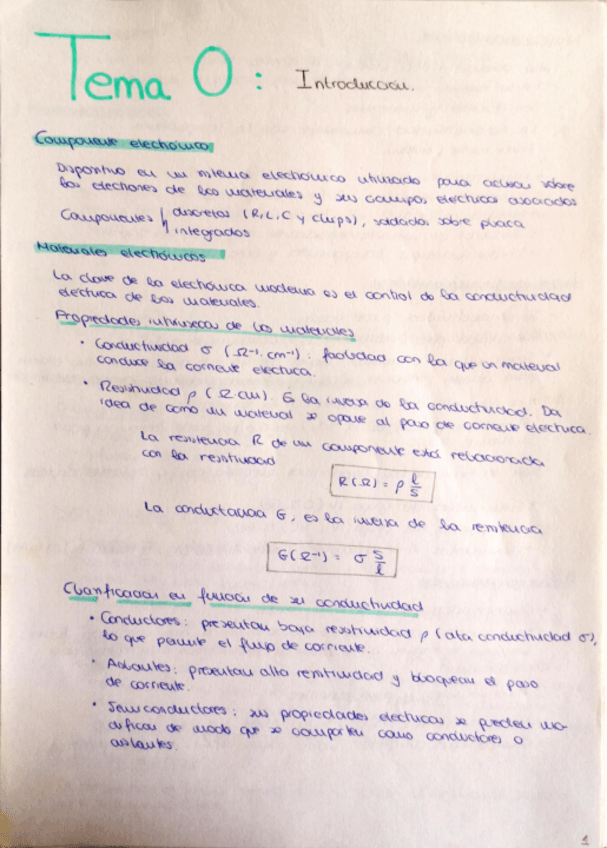 Tema 0 : Introducción.
Componente electrónico
Dispositivo en un sistema electrónico utilizado para actuar sobre
los electrones de los materiales y sus campos eléctricos asociados
Componentes { discretos (R, L, C y chips), soldados sobre placa
integrados
Materiales electrónicos
La clave de la electrónica moderna es el control de la conductividad
eléctrica de los materiales.
Propiedades intrínsecas de los materiales
• Conductividad σ (Ω⁻¹. cm⁻¹) : facilidad con la que un material
conduce la corriente eléctrica.
• Resistividad ρ (Ω.cm). Es la inversa de la conductividad. Da
idea de como un material se opone al paso de corriente eléctrica.
La resistencia R de un componente está relacionada
con la resistividad
R(Ω) = ρ l/S
La conductancia G, es la inversa de la resistencia
G(Ω⁻¹) = σ S/l
Clasificación en función de su conductividad
• Conductores : presentan baja resistividad ρ (alta conductividad σ),
lo que permite el flujo de corriente.
• Aislantes : presentan alta resistividad y bloquean el paso
de corriente.
• Semiconductores : sus propiedades eléctricas se pueden mo-
dificar de modo que se comporten como conductores o
aislantes.
1